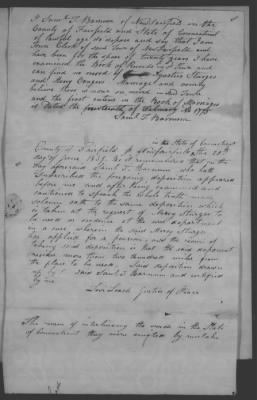 I Saml. T. Barnum of New Fairfield in the
County of Fairfield and State of Connecticut
of lawful age do depose and say that I am
Town Clerk of said Town of New Fairfield and
have been for the space of twenty years I have
examined the Book of Records in this town and
can find no record of Sturges
and Mary Congers Marriage and verily
believe there is never on record in said Town
and the first entries in the Book of Marriages
is dated the fourteenth of February AD 1775
Saml. T. Barnum
in the State of Connecticut
County of Fairfield New Fairfield the 20th
day of June 1839. Be it remembered that on the
day aforesaid Saml. T. Barnum who hath
Subscribed the foregoing deposition appeared
before me and after being examined and
cautioned to speak the whole truth made
solemn oath to the same deposition which
is taken at the request of Mary Sturges to
be used as evidence at the war department
in a case wherein the said Mary Sturges
has applied for a pension, and the reason of
taking said deposition is that the said deponent
resides more than two hundred miles from
the place to be used. Said deposition drawn
up by said Saml. T. Barnum and subscribed
by me
Levi Leach Justice of Peace
The reason of interlining the words in the State
of Connecticut they were omitted by mistake